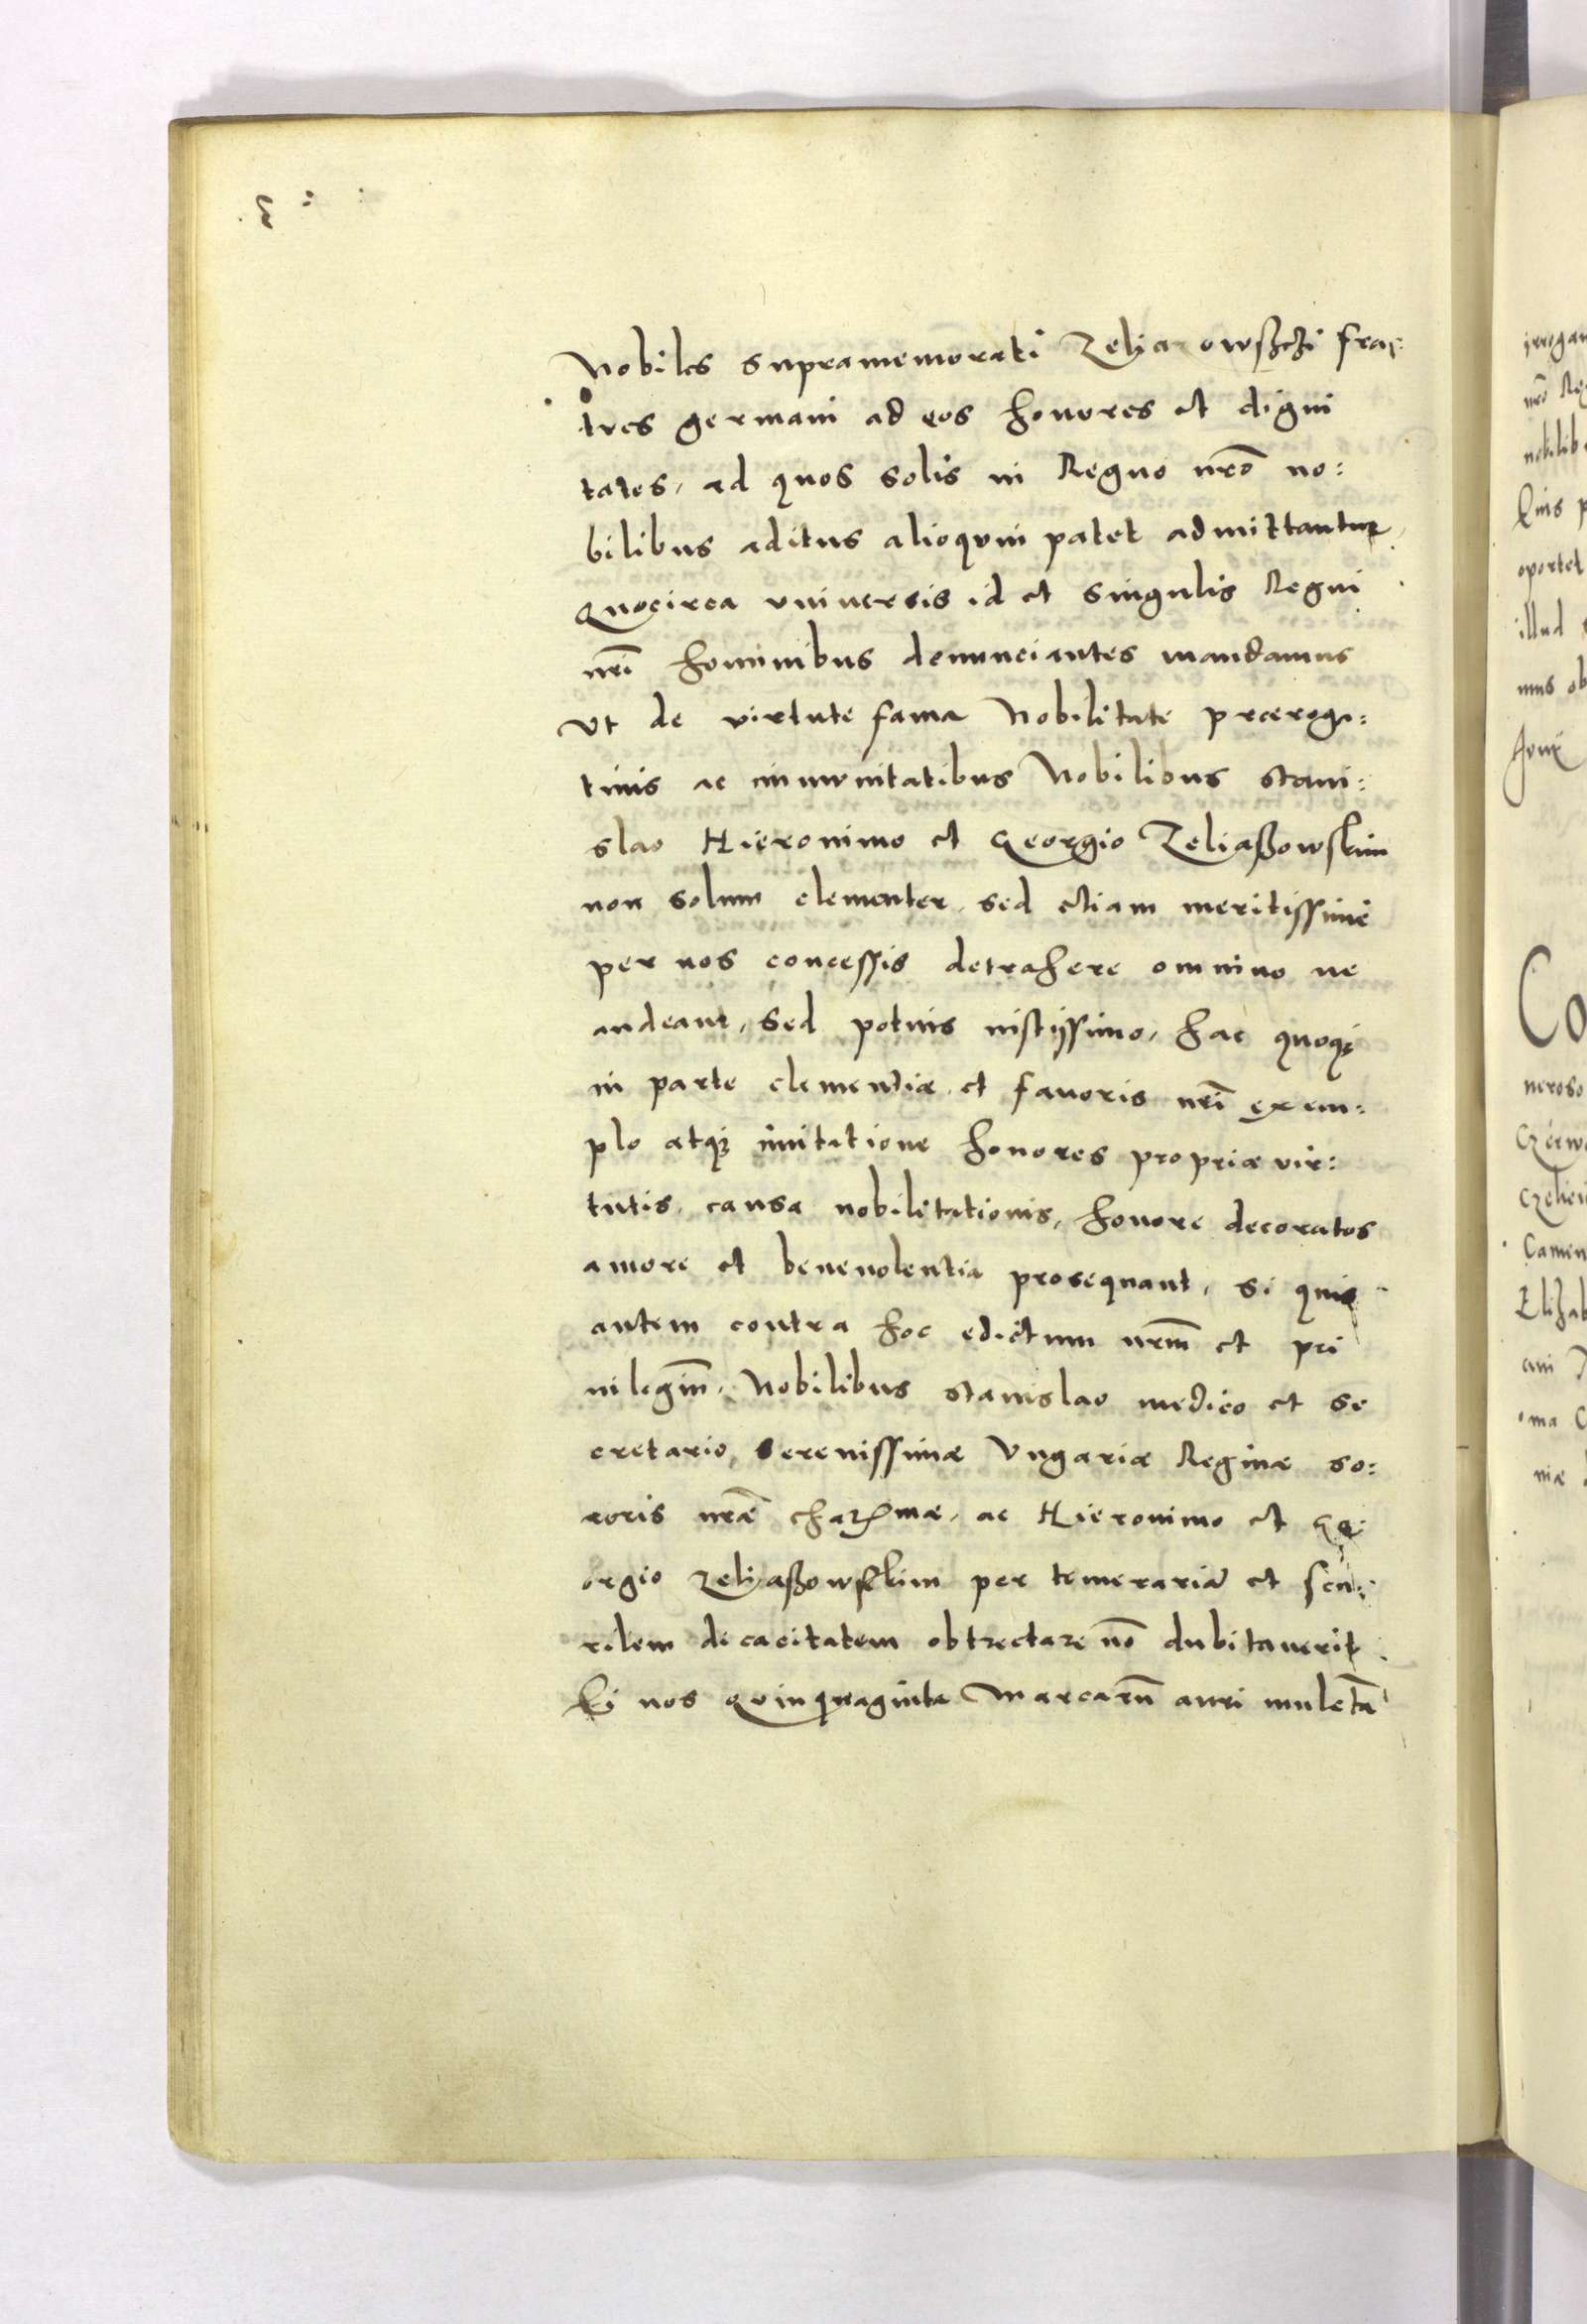 Nobiles supramemorati Zeliaɀowßchi fra:
tres germani ad eos honores et digni
tates, ad quos solis in Regno nr̃o no:
bilibus aditus alioquin patet admittantur,
Quocirca vniuersis id et singulis Regni
nr̃i hominibus denunciantes mandamus
Vt de virtute fama Nobilitate præroga:
tiuis ac immunitatibus Nobilibus stani:
slao Hieronimo et Georgio Zeliaßowskim
non solum clementer, sed etiam meritissime
per nos concessis detrahere omnino ne
audeant, sed potius iustissimo, hac quoq3
in parte clementiæ et fauoris nr̃i exem:
plo atq3 imitatione honores propriæ vir:
tutis, causa nobilitationis, honore decoratos
amore et beneuolentia prosequant, si quis
autem contra hoc edictum nr̃m et pri
uilegiũ, Nobilibus stanislao medico et se
cretario, serenissimæ Vngariæ Reginæ so:
roris nr̃æ charmæ, ac Hieronimo et Ge:
orgio Zeliaßowskim per temerariã et scu:
rilem dicacitatem obtrectare nõ dubitauerit
Ei nos Quinquaginta Marcarũ auri mulctã
irrogan
nr̃o Reg
nobilib
Eius p
oportet
illud
mus ob
Co
neroso
Czerw
Czeliei
Camen
Elizab
ani
ma C
niæ